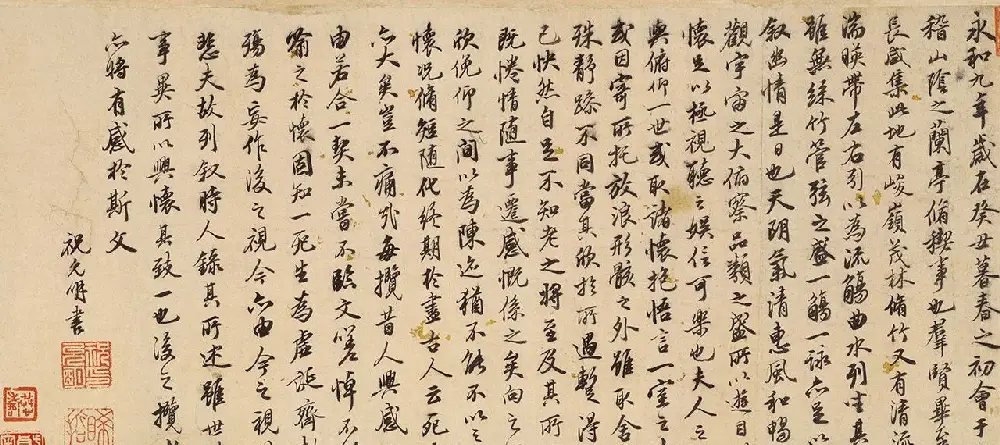 永和九年歲在癸丑暮春之初會于
稽山陰之蘭亭脩禊事也羣賢畢至
長咸集此地有峻嶺茂林脩竹又有清流
湍暎帶左右引以為流觴曲水列坐其
雖無絲竹管弦之盛一觴一詠亦足
叙幽情是日也天朗氣清惠風和暢
觀宇宙之大俯察品類之盛所以遊目
懷足以極視聽之娛信可樂也夫人之
與俯仰一世或取諸懷抱悟言一室之
或因寄所托放浪形骸之外雖取舍
殊靜躁不同當其欣於所遇暫得
己快然自足不知老之將至及其所
既惓情隨事遷感慨係之矣向之
欣俛仰之間以為陳迹猶不能不以之
懷況脩短隨化終期於盡古人云死
亦大矣豈不痛哉每攬昔人興感
由若合一契未嘗不臨文嗟悼不
喻之於懷固知一死生為虛誕齊
殤為妄作後之視今亦由今之視
悲夫故列叙時人錄其所述雖世
事異所以興懷其致一也後之攬
亦將有感於斯文
祝允明書